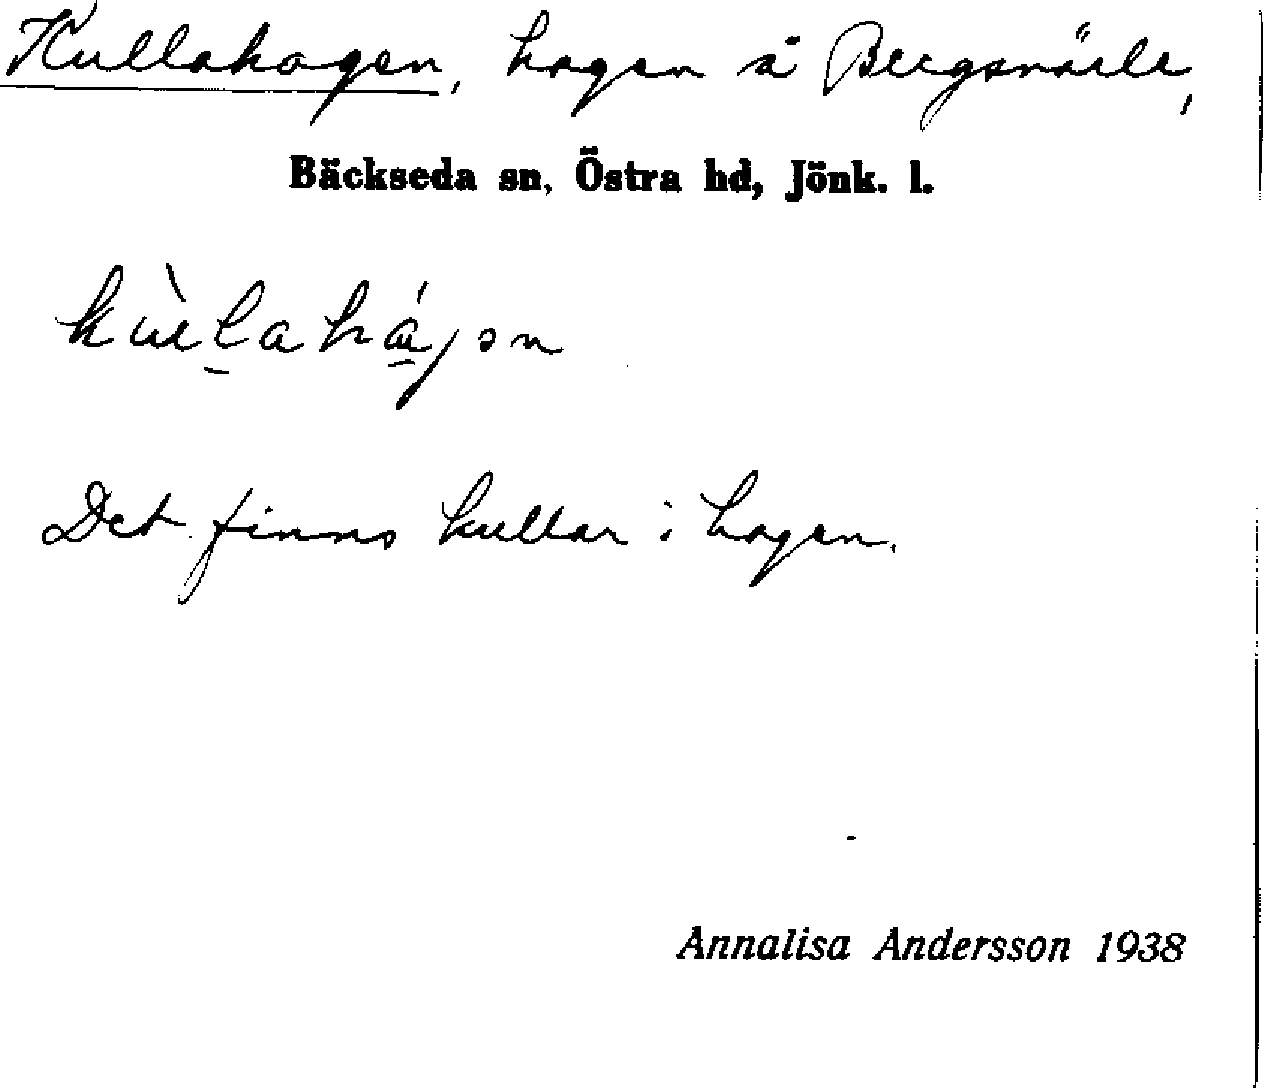 Kullahagen, hagen å Bergsnärle,
Bäckseda sn, Östra hd, Jönk. l.
Det finns kullar i hagen.
Annalisa Andersson 1938